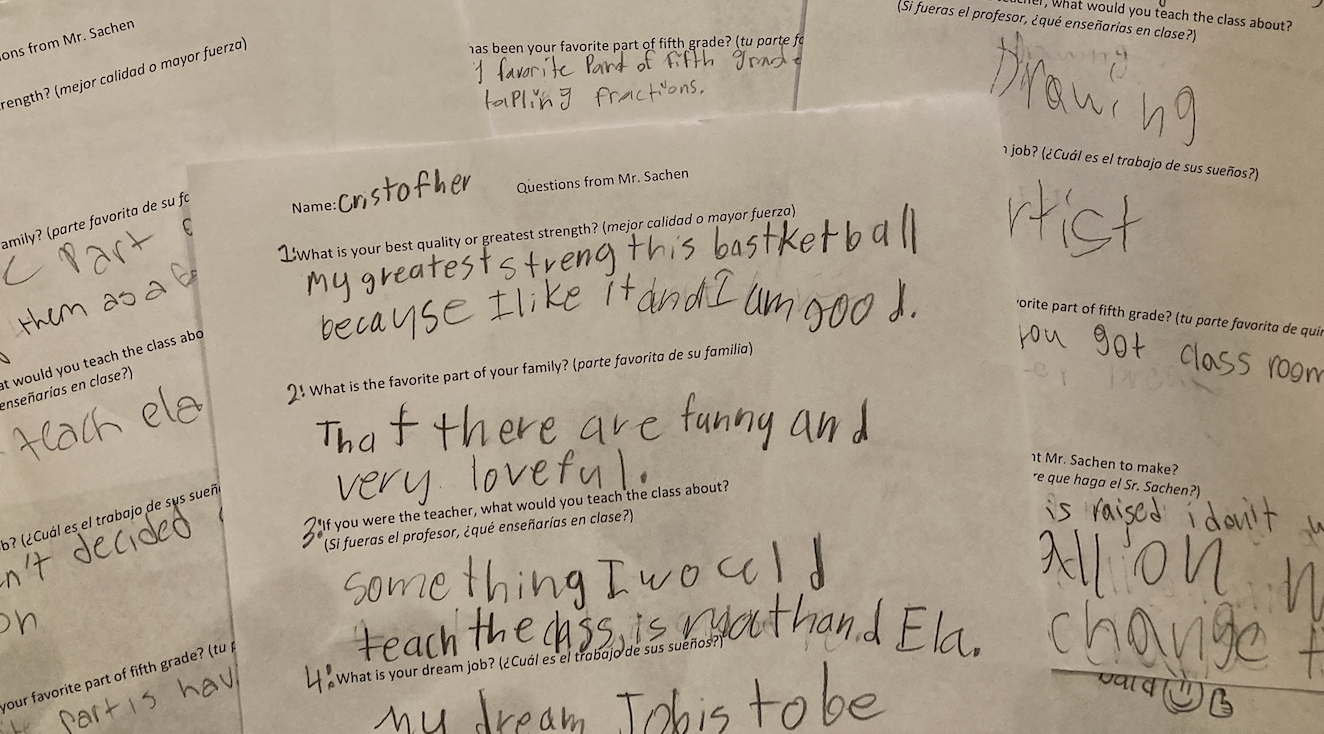 ons from Mr. Sachen
rength? (mejor calidad o mayor fuerza)
amily? (parte favorita de su fa
part
them as a
at would you teach the class abo
enseñarías en clase?)
teach ela
b? (¿Cuál es el trabajo de sus sueñ
n't decided
on
your favorite part of fifth grade? (tu p
part is hav
has been your favorite part of fifth grade? (tu parte fa
favorite Part of fifth grade
fractions.
Name: Cristofher
Questions from Mr. Sachen
1: What is your best quality or greatest strength? (mejor calidad o mayor fuerza)
My greatest strength is bastketball
because I like it and I am good.
2: What is the favorite part of your family? (parte favorita de su familia)
That there are funny and
very loveful.
3: If you were the teacher, what would you teach the class about?
(Si fueras el profesor, ¿qué enseñarías en clase?)
something I would
teach the class, is math and Ela.
4: What is your dream job? (¿Cuál es el trabajo de sus sueños?)
My dream Job is to be
her, what would you teach the class about?
(Si fueras el profesor, ¿qué enseñarías en clase?)
Drawing
job? (¿Cuál es el trabajo de sus sueños?)
rtist
orite part of fifth grade? (tu parte favorita de quin
you got class room
nt Mr. Sachen to make?
re que haga el Sr. Sachen?)
is raised i don't
All
change